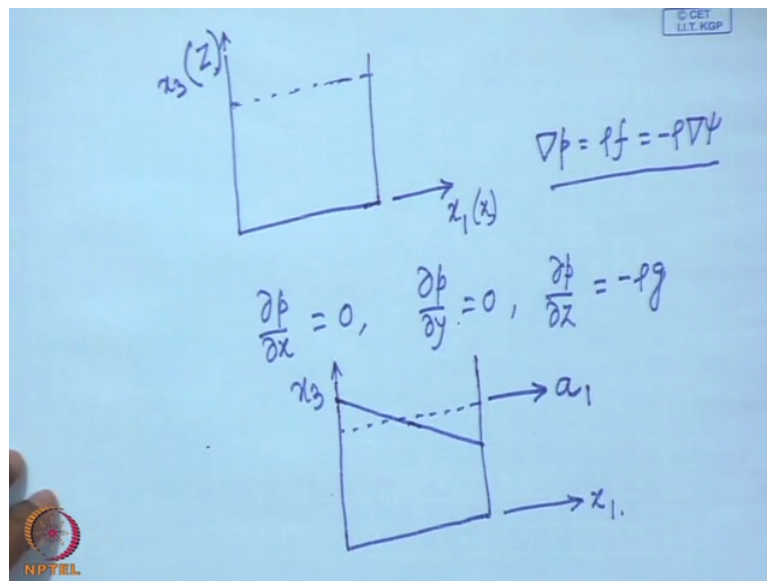 © CET
I.I.T. KGP
x₃(Z)
∇p = ρf = -ρ∇ψ
x₁(x)
∂p/∂x = 0, ∂p/∂y = 0, ∂p/∂z = -ρg
x₃
a₁
x₁.
NPTEL